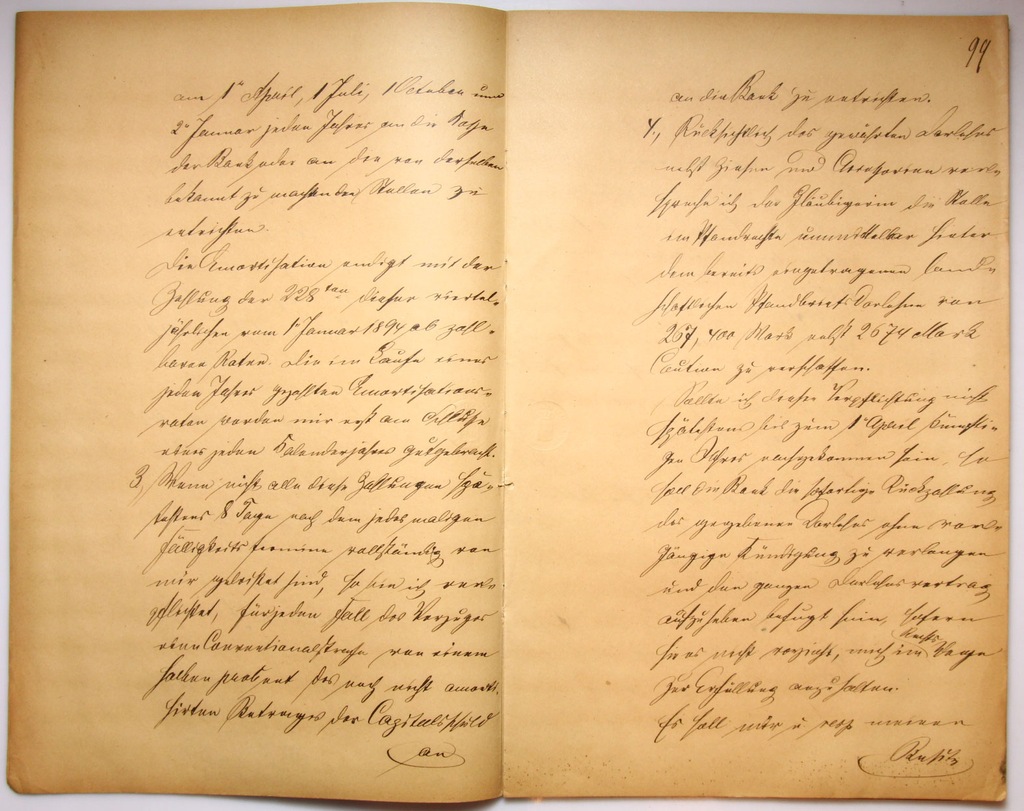 am 1ten April, 1 Juli, 1 October und
2n Januar jeden Jahres an die Kasse
der Bank oder an den von derselben
bekannt zu machenden Stellen zu
entrichten.
Die Amortisation endigt mit der
Zahlung der 228ten dieser viertel-
jährlichen vom 1n Januar 1894 ab zahl-
baren Raten. Die im Laufe eines
jeden Jahres gezahlten Amortisations-
raten werden mir erst am Schlusse
eines jeden Kalenderjahres gutgebracht.
3, Wenn nicht alle diese Zahlungen spä-
testens 8 Tage nach dem jedesmaligen
Fälligkeitstermine vollständig von
mir geleistet sind, so bin ich ver-
pflichtet, für jeden Fall des Verzuges
eine Conventionalstrafe von einem
halben Prozent des noch nicht amorti-
sirten Betrages der Capitalsschuld
an
99
an die Bank zu entrichten.
4, Rücksichtlich des gewährten Darlehns
nebst Zinsen und Accessorien ver-
spreche ich der Gläubigerin die Stelle
im Pfandrechte unmittelbar hinter
dem bereits eingetragenen land-
schaftlichen Pfandbriefs Darlehn von
267,400 Mark nebst 2674 Mark
Caution zu verschaffen.
Sollte ich dieser Verpflichtung nicht
spätestens bis zum 1n April künfti-
gen Jahres nachgekommen sein, so
soll die Bank die sofortige Rückzahlung
des gegebenen Darlehns ohne vor-
gängige Kündigung zu verlangen
und den ganzen Darlehnsvertrag
aufzuheben befugt sein, sofern
sie es nicht vorzieht, mich im Rechts Wege
zur Erfüllung anzuhalten.
Es soll mir u meinen
Besitz